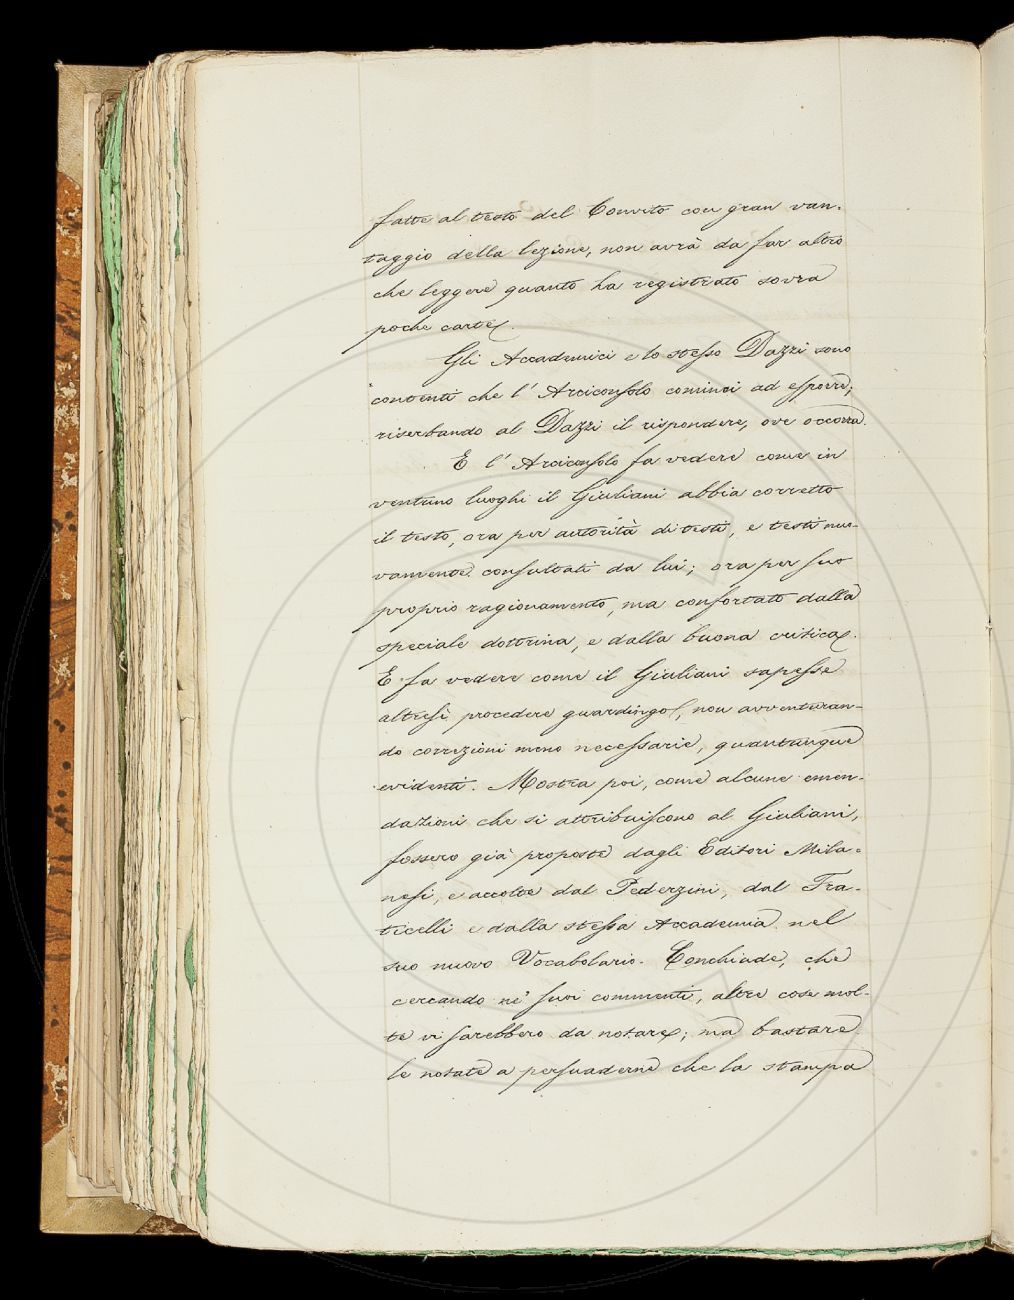 fatte al testo del Convito con gran van-
taggio della lezione, non avrà da far altro
che leggere quanto ha registrato sovra
poche carte.
Gli Accademici e lo stesso Dazzi sono
contenti che l'Arciconsolo cominci ad esporre;
riserbando al Dazzi il rispondere, ove occorra.
E l'Arciconsolo fa vedere come in
ventuno luoghi il Giuliani abbia corretto
il testo, ora per autorità di testi, e testi nuo-
vamente consultati da lui; ora per suo
proprio ragionamento, ma confortato dalla
speciale dottrina, e dalla buona critica.
E fa vedere come il Giuliani sapesse
altresì procedere guardingo, non avventuran-
do correzioni meno necessarie, quantunque
evidenti. Mostra poi, come alcune emen-
dazioni che si attribuiscono al Giuliani,
fossero già proposte dagli Editori Mila-
nesi, e accolte dal Pederzini, dal Fra-
ticelli e dalla stessa Accademia nel
suo nuovo Vocabolario. Conchiude, che
cercando ne' suoi commenti, altre cose mol-
te vi sarebbero da notare; ma bastare
le notate a persuaderne che la stampa